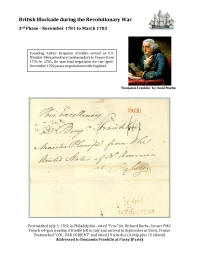 British Blockade during the Revolutionary War
3rd Phase - November 1781 to March 1783
Founding Father Benjamin Franklin served as U.S.
Minister Plenipotentiary (ambassador) to France from
1776 to 1785. He was lead negotiator for the April-
November 1782 peace negotiations with England.
"Benjamin Franklin" by David Martin
His Excellency
Benj Franklin
Minister Plenipo: from the
United States of N. America
at Passy
Postmarked July 5, 1782 in Philadelphia - rated "Free" for Richard Bache, former PMG
French 64-gun warship
left in July and arrived in September at Brest, France
Postmarked "COL. PAR LORIENT" and rated 19 sols due
Addressed to Benjamin Franklin at Passy (Paris)